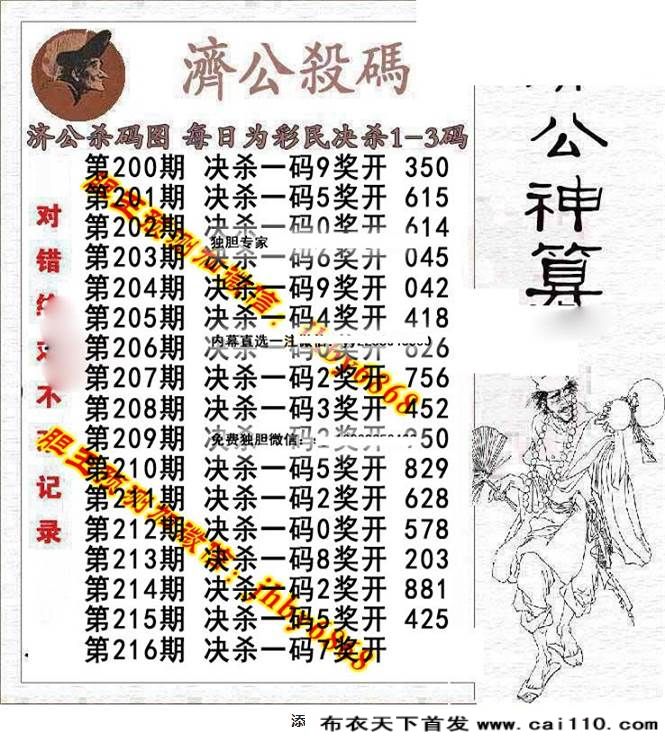 濟公殺碼
济公杀码图 每日为彩民决杀1-3码
第200期 决杀一码9奖开 350
第201期 决杀一码5奖开 615
第202期 决杀一码0奖开 614
独胆专家
第203期 决杀一码6奖开 045
第204期 决杀一码9奖开 042
第205期 决杀一码4奖开 418
内幕直选一注
第206期 决杀一码 奖开 626
第207期 决杀一码2奖开 756
第208期 决杀一码3奖开 452
第209期 决杀一码 奖开 50
免费独胆微信：
第210期 决杀一码5奖开 829
第211期 决杀一码2奖开 628
第212期 决杀一码0奖开 578
第213期 决杀一码8奖开 203
第214期 决杀一码2奖开 881
第215期 决杀一码5奖开 425
第216期 决杀一码7奖开
对错 不 记录
公神算
胆王 微信： 6868
胆王 加微信：jhby6868
添 布衣天下首发 www.cai110.com